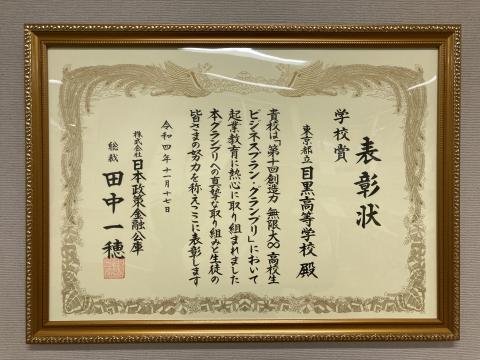 表彰状
学校賞
東京都立 目黒高等学校 殿
貴校は「第十回創造力 無限大∞ 高校生
ビジネスプラン・グランプリ」において
起業教育に熱心に取り組まれました
本グランプリへの真摯な取り組みと生徒の
皆さまの努力を称えここに表彰します
令和四年十一月十七日
株式会社 日本政策金融公庫
総裁 田中一穂